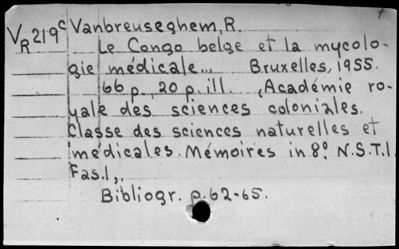 VR219c Vanbreuseghem, R.
Le Congo belge et la mycolo-
gie médicale... Bruxelles, 1955.
66 p., 20 p. ill. (Académie ro-
yale des sciences coloniales.
Classe des sciences naturelles et
médicales. Mémoires in 8º. N.S.T.I.
Fas.1,.
Bibliogr. p.62-65.